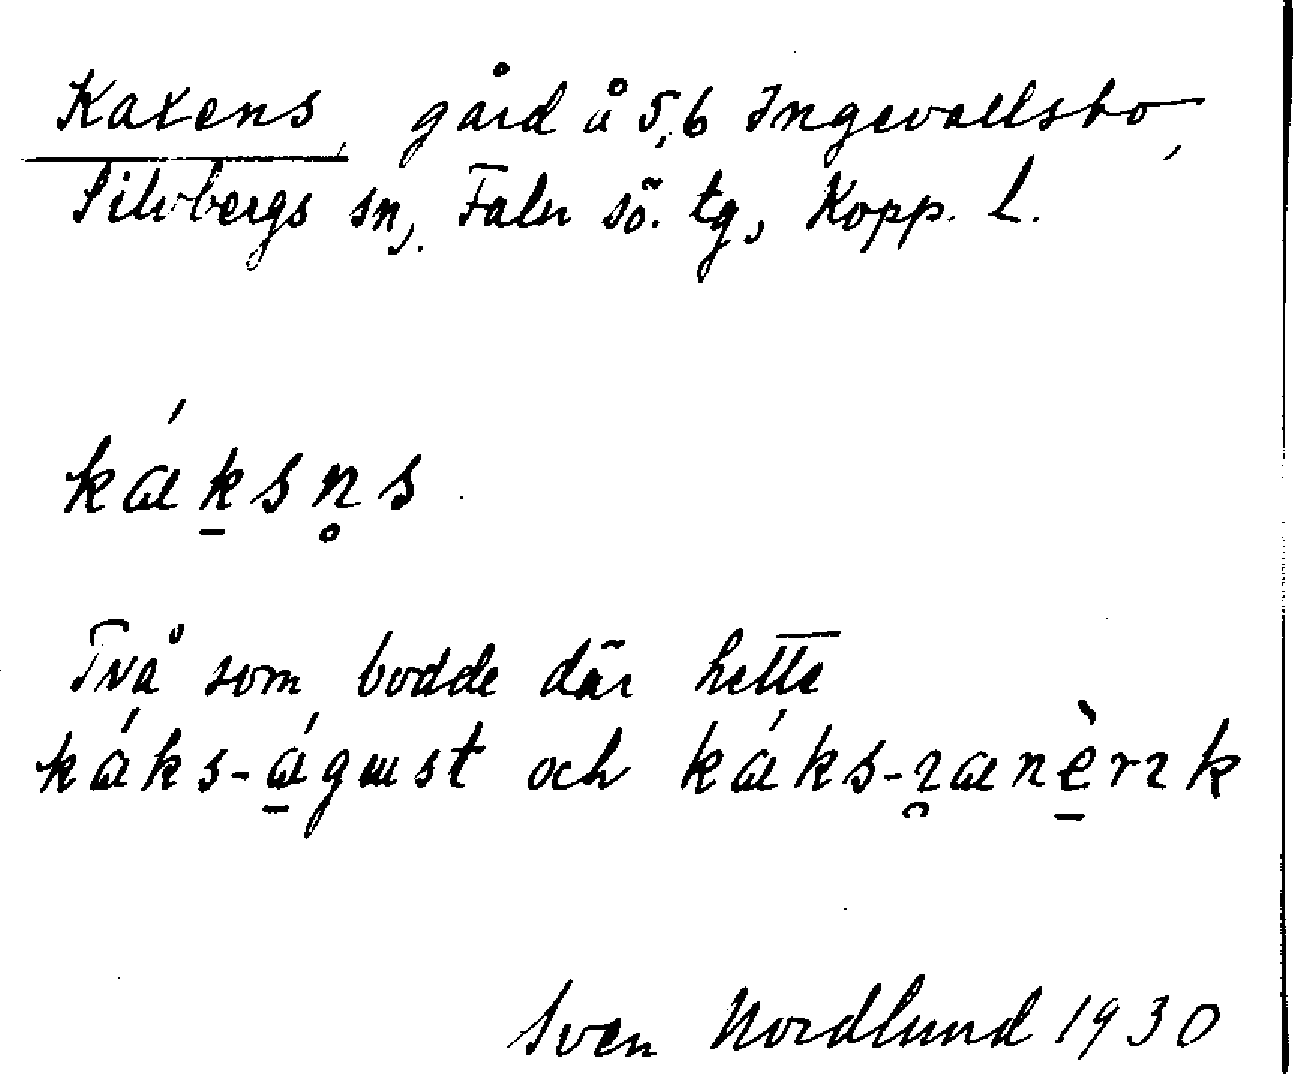 Kaxens, gård å 5,6 Ingevallsbo,
Silvbergs sn, Falu sö. tg, Kopp. L.
káks̥n̥s
Två som bodde där hette
káks-águst och káks-ɪanèrɪk
Sven Nordlund 1930